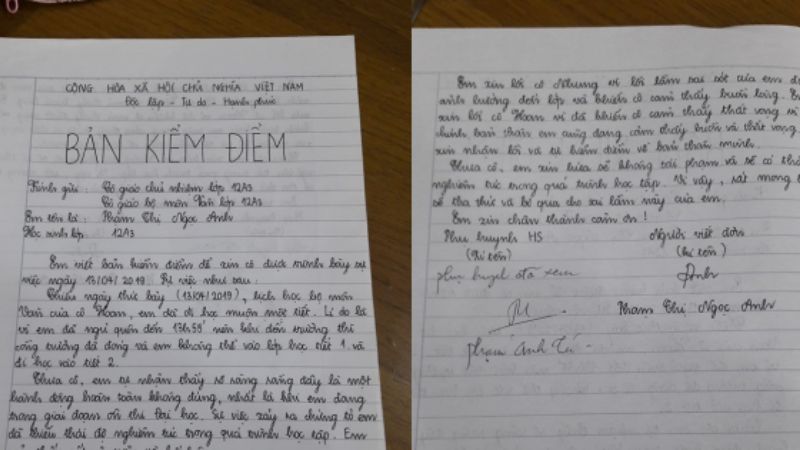 CỘNG HÒA XÃ HỘI CHỦ NGHĨA VIỆT NAM
Độc lập - Tự do - Hạnh phúc
BẢN KIỂM ĐIỂM
Kính gửi : Cô giáo chủ nhiệm lớp 12A3
Cô giáo bộ môn Văn lớp 12A3
Em tên là : Phạm Thị Ngọc Anh
Học sinh lớp : 12A3
Em viết bản kiểm điểm để xin cô được trình bày sự
việc ngày 13/04/2019. Sự việc như sau :
Chiều ngày thứ bảy (13/04/2019), lịch học bộ môn
Văn của cô Hoan, em đã đi học muộn một tiết. Lí do là
vì em đã ngủ quên đến 13h59' nên khi đến trường thì
cổng trường đã đóng và em không thể vào lớp học tiết 1 và
đi học vào tiết 2.
Thưa cô, em tự nhận thấy rõ ràng rằng đây là một
hành động hoàn toàn không đúng, nhất là khi em đang
trong giai đoạn ôn thi Đại học. Sự việc xảy ra chứng tỏ em
đã thiếu thái độ nghiêm túc trong quá trình học tập. Em
Em xin lỗi cô Nhung vì lỗi lầm sai sót của em đã
ảnh hưởng đến lớp và khiến cô cảm thấy buồn lòng. Em
xin lỗi cô Hoan vì đã khiến cô cảm thấy thất vọng vì
chính bản thân em cũng đang cảm thấy buồn và thất vọng
xin nhận lỗi và tự kiểm điểm về bản thân mình.
Thưa cô, em xin hứa sẽ không tái phạm và sẽ có thái
nghiêm túc trong quá trình học tập. Vì vậy, rất mong
sẽ tha thứ và bỏ qua cho sai lầm này của em.
Em xin chân thành cảm ơn !
Phụ huynh HS Người viết đơn
(Kí tên) (kí tên)
phụ huynh đã xem Anh
Phạm Thị Ngọc Anh
phạm Anh Tú